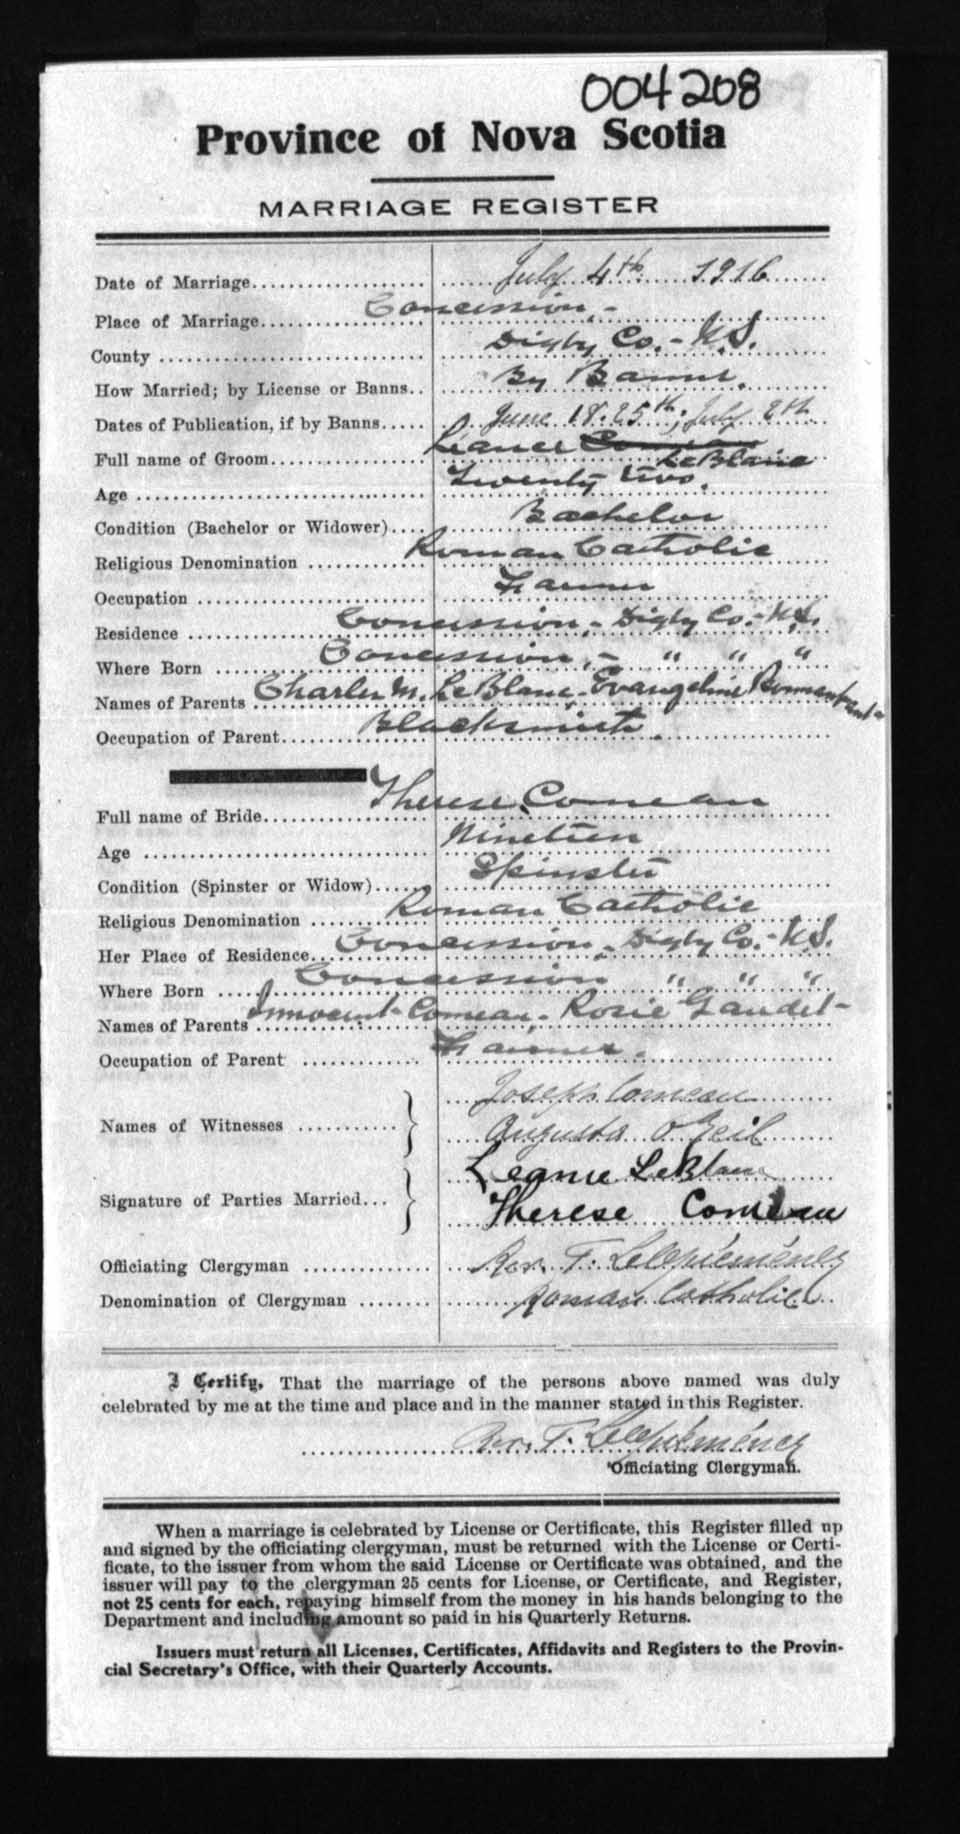 004208
Province of Nova Scotia
MARRIAGE REGISTER
Date of Marriage July 4th 1916
Place of Marriage Concession,-
County Digby Co.- N.S.
How Married; by License or Banns By Banns.
Dates of Publication, if by Banns June 18. 25th; July 2th
Full name of Groom Leance Comeau LeBlanc
Age Twenty two.
Condition (Bachelor or Widower) Bachelor
Religious Denomination Roman Catholic
Occupation Farmer
Residence Concession,- Digby Co.- N.S.
Where Born Concession,- " " "
Names of Parents Charles M. LeBlanc, Evangeline
Occupation of Parent Blacksmith.
Full name of Bride Therese Comeau
Age Nineteen
Condition (Spinster or Widow) Spinster
Religious Denomination Roman Catholic
Her Place of Residence Concession,- Digby Co.- N.S.
Where Born Concession " " "
Names of Parents Innocent Comeau, Rosie Gaudet-
Occupation of Parent Farmer.
Names of Witnesses Joseph Comeau
Augusta
Signature of Parties Married Leance LeBlanc
Therese Comeau
Officiating Clergyman Rev. F.
Denomination of Clergyman Roman Catholic
I Certify, That the marriage of the persons above named was duly
celebrated by me at the time and place and in the manner stated in this Register.
Rev. F.
Officiating Clergyman.
When a marriage is celebrated by License or Certificate, this Register filled up
and signed by the officiating clergyman, must be returned with the License or Certi-
ficate, to the issuer from whom the said License or Certificate was obtained, and the
issuer will pay to the clergyman 25 cents for License, or Certificate, and Register,
not 25 cents for each, repaying himself from the money in his hands belonging to the
Department and including amount so paid in his Quarterly Returns.
Issuers must return all Licenses, Certificates, Affidavits and Registers to the Provin-
cial Secretary's Office, with their Quarterly Accounts.